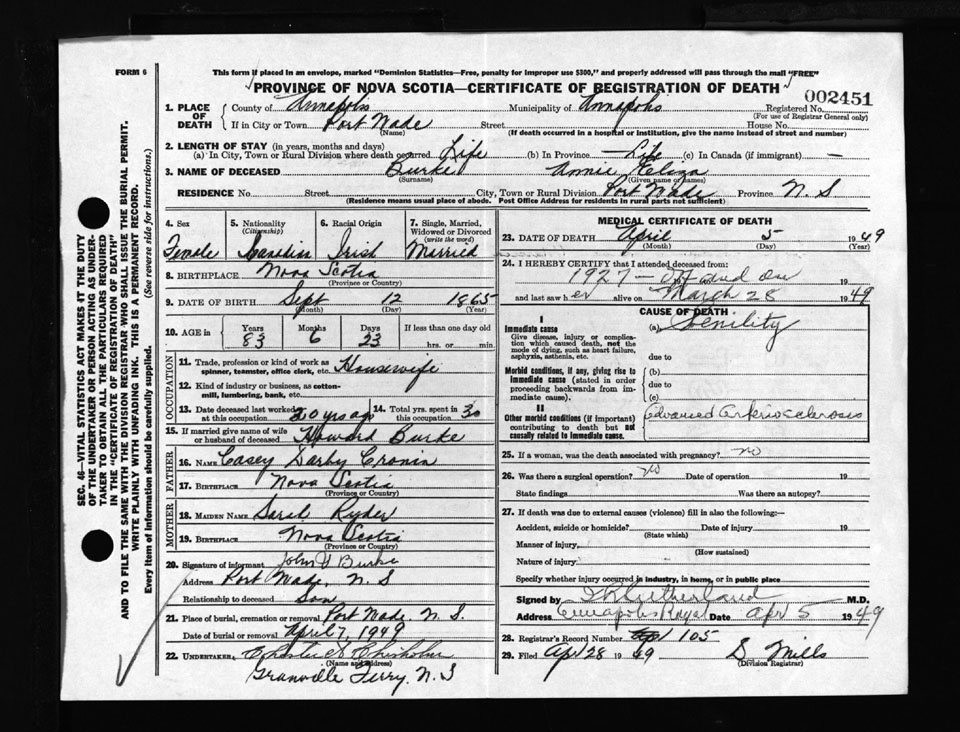 FORM 6
This form if placed in an envelope, marked "Dominion Statistics—Free, penalty for improper use $300," and properly addressed will pass through the mail "FREE"
PROVINCE OF NOVA SCOTIA—CERTIFICATE OF REGISTRATION OF DEATH
002451
1. PLACE OF DEATH County of Annapolis Municipality of Annapolis Registered No.
(For use of Registrar General only)
If in City or Town Port Wade Street House No.
(Name) (If death occurred in a hospital or institution, give the name instead of street and number)
2. LENGTH OF STAY (in years, months and days)
(a) In City, Town or Rural Division where death occurred Life (b) In Province Life (c) In Canada (if immigrant) —
3. NAME OF DECEASED Burke Annie Eliza
(Surname) (Given name or names)
RESIDENCE No. Street City, Town or Rural Division Port Wade Province N. S
(Residence means usual place of abode. Post Office Address for residents in rural parts not sufficient)
4. Sex 5. Nationality 6. Racial Origin 7. Single, Married,
(Citizenship) Widowed or Divorced
(write the word)
Female Canadian Irish Married
8. BIRTHPLACE Nova Scotia
(Province or Country)
9. DATE OF BIRTH Sept 12 1865
(Month) (Day) (Year)
10. AGE in Years Months Days If less than one day old
83 6 23 hrs. or min.
OCCUPATION
11. Trade, profession or kind of work as
spinner, teamster, office clerk, etc. Housewife
12. Kind of industry or business, as cotton-
mill, lumbering, bank, etc.
13. Date deceased last worked at this occupation 20 yrs ago 14. Total yrs. spent in this occupation 30
15. If married give name of wife
or husband of deceased Howard Burke
FATHER
16. NAME Casey Darby Cronin
17. BIRTHPLACE Nova Scotia
(Province or Country)
MOTHER
18. MAIDEN NAME Sarah Ryder
19. BIRTHPLACE Nova Scotia
(Province or Country)
20. Signature of informant John Burke
Address Port Wade, N. S
Relationship to deceased Son
21. Place of burial, cremation or removal Port Wade N. S.
Date of burial or removal April 7, 1949
22. UNDERTAKER, Chisholm
(Name and address)
Granville Ferry, N. S
MEDICAL CERTIFICATE OF DEATH
23. DATE OF DEATH April 5 1949
(Month) (Day) (Year)
24. I HEREBY CERTIFY that I attended deceased from:
1927 — off and on
and last saw her alive on March 28 1949
CAUSE OF DEATH
I
Immediate cause (a) Senility
Give disease, injury or complica-
tion which caused death, not the
mode of dying, such as heart failure,
asphyxia, asthenia, etc. due to
Morbid conditions, if any, giving rise to (b)
immediate cause (stated in order due to
proceeding backwards from im-
mediate cause). (c)
II
Other morbid conditions (if important) Advanced Arteriosclerosis
contributing to death but not
causally related to immediate cause.
25. If a woman, was the death associated with pregnancy? no
26. Was there a surgical operation? no Date of operation 19
State findings Was there an autopsy?
27. If death was due to external causes (violence) fill in also the following:—
Accident, suicide or homicide? Date of injury 19
(State which)
Manner of injury
(How sustained)
Nature of injury
Specify whether injury occurred in industry, in home, or in public place
Signed by Sutherland M.D.
Address Annapolis Royal Date Apr 5 1949
28. Registrar's Record Number 105
29. Filed Apr 28 1949 S. Mills
(Division Registrar)
SEC. 46—VITAL STATISTICS ACT MAKES IT THE DUTY
OF THE UNDERTAKER OR PERSON ACTING AS UNDER-
TAKER TO OBTAIN ALL THE PARTICULARS REQUIRED
IN THE "CERTIFICATE OF REGISTRATION OF DEATH"
AND TO FILE THE SAME WITH THE DIVISION REGISTRAR WHO SHALL ISSUE THE BURIAL PERMIT.
WRITE PLAINLY WITH UNFADING INK. THIS IS A PERMANENT RECORD.
Every item of information should be carefully supplied. (See reverse side for instructions.)